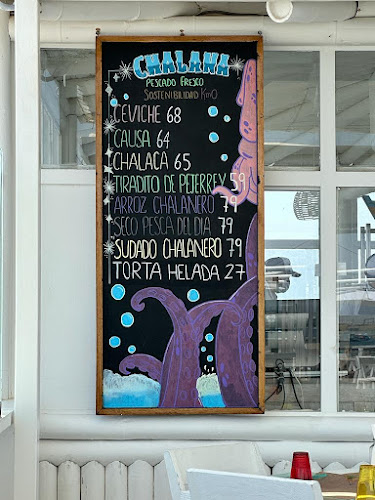 CHALANA
PESCADO FRESCO
SOSTENIBILIDAD Km0
CEVICHE 68
CAUSA 64
CHALACA 65
TIRADITO DE PEJERREY 59
ARROZ CHALANERO 79
SECO PESCA DEL DIA 79
SUDADO CHALANERO 79
TORTA HELADA 27